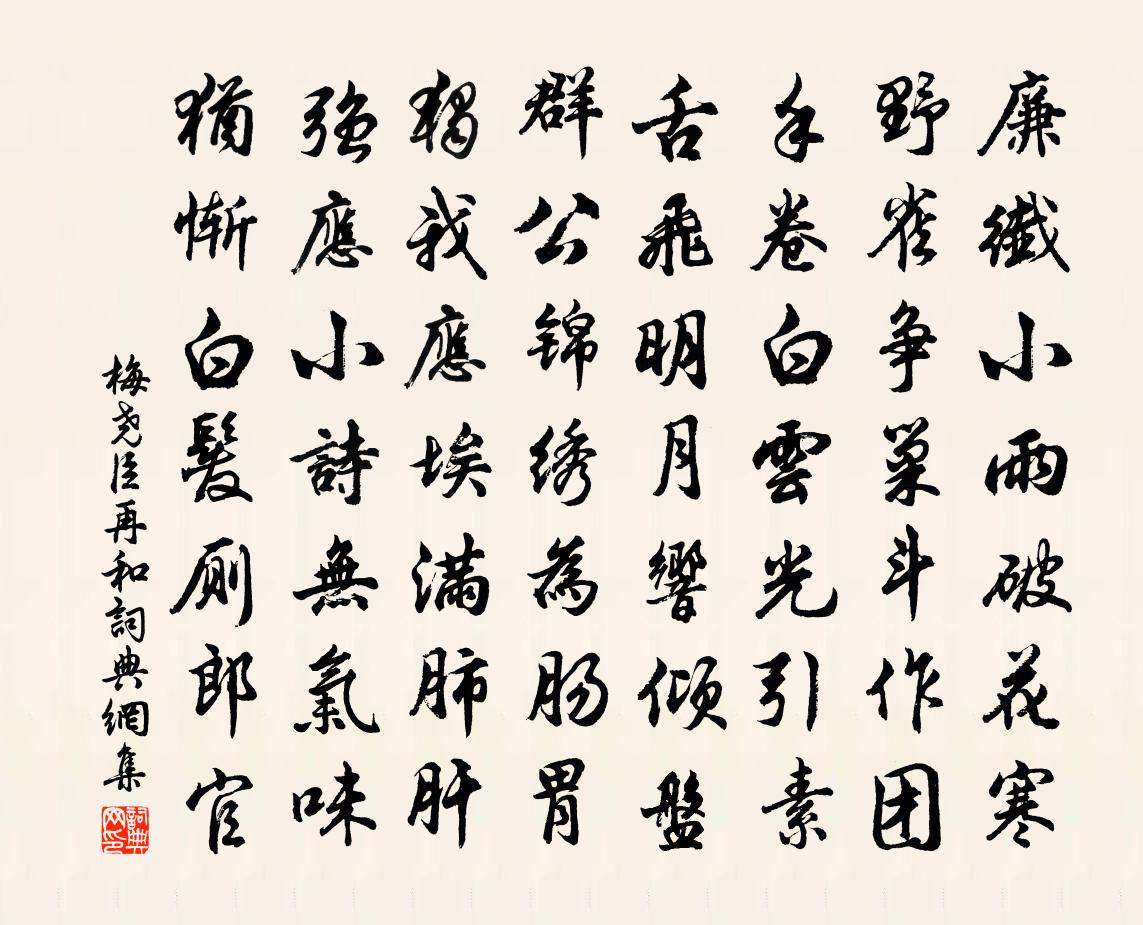 廉纖小雨破花寒
野雀争巢斗作团
手卷白雲光引素
舌飛明月響傾盤
群公锦绣為肠胃
獨我應埃滿肺肝
強應小詩無氣味
猶慚白髮厠郎官
梅堯臣再和詞典網集
詞典网印